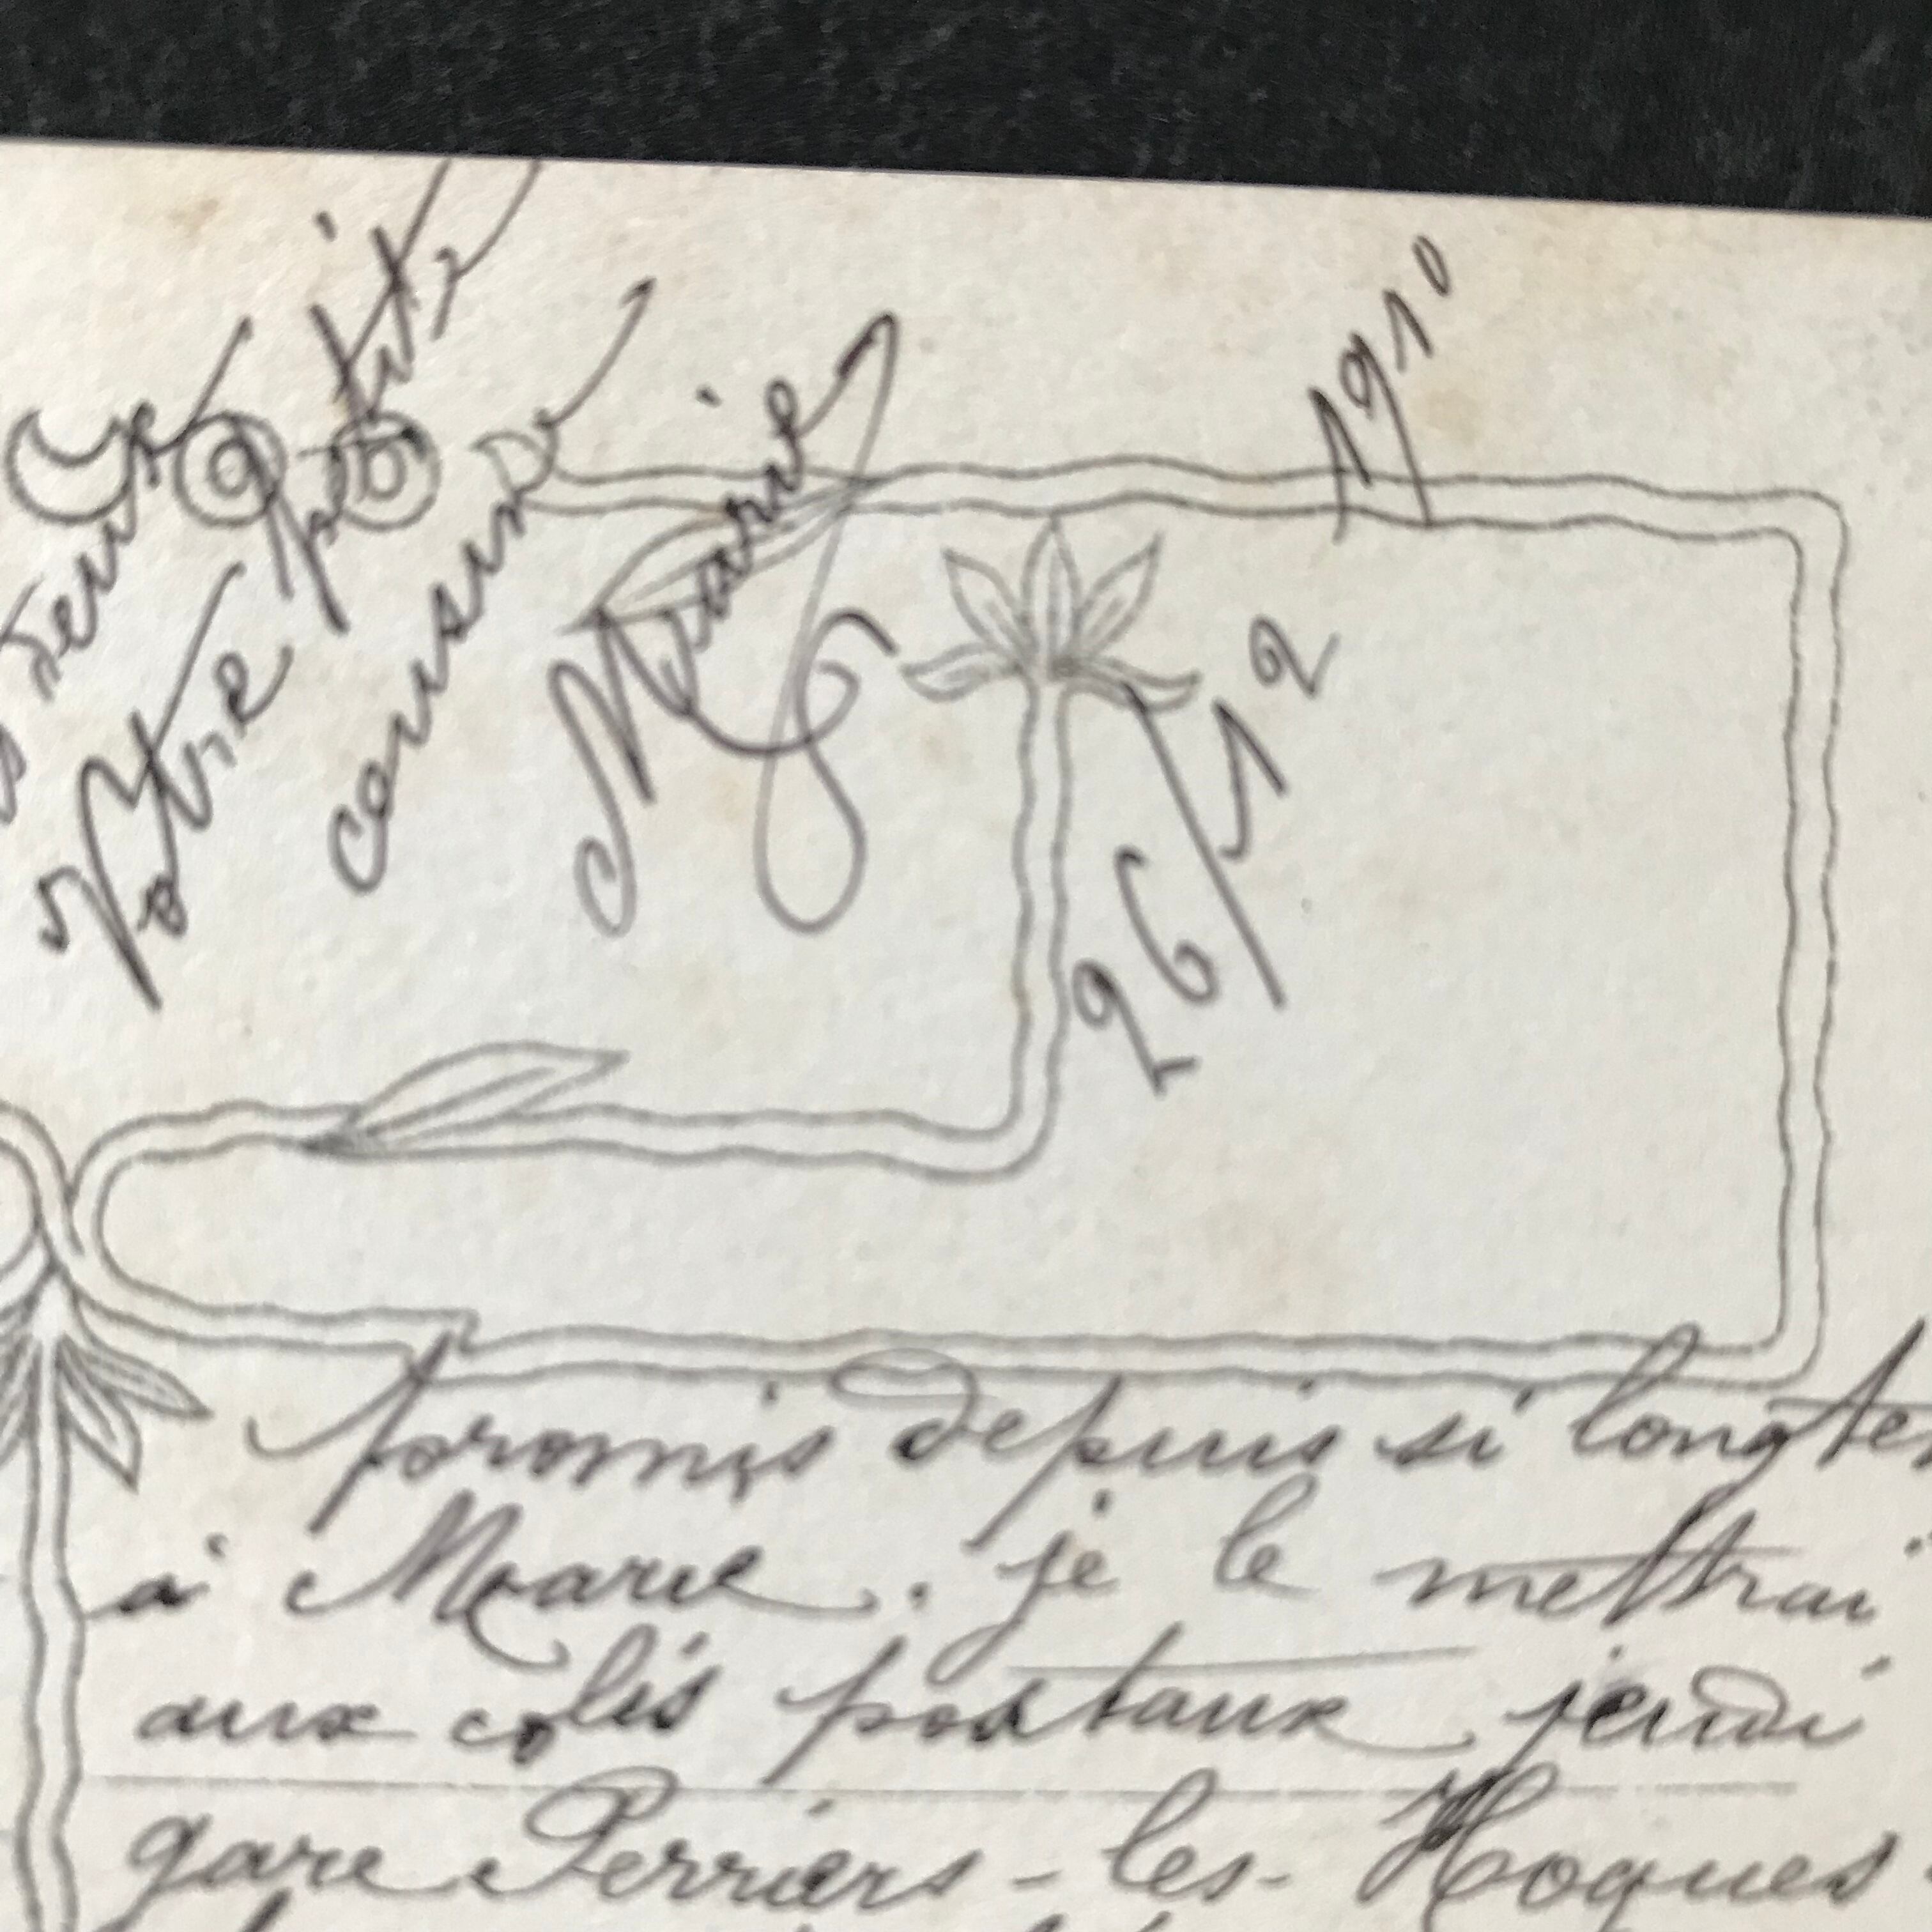 Votre petite
cousine
Marie
26/12
1910
promis depuis si
à Marie. je le mettrai
aux colis postaux jeudi
gare Perriers-les-Hogues